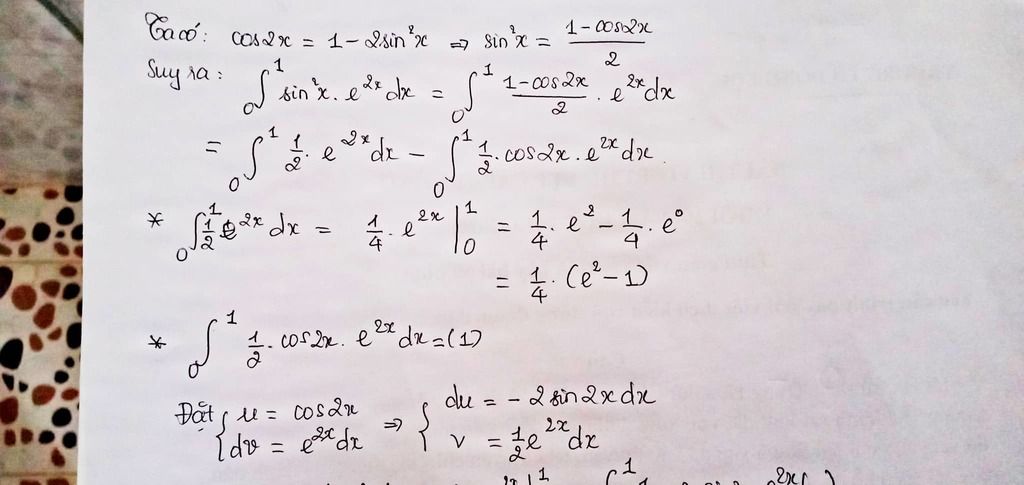 Ta có: cos2x = 1 - 2sin²x ⇒ sin²x = (1-cos2x)/2
Suy ra: ∫₀¹ sin²x . e^(2x) dx = ∫₀¹ (1-cos2x)/2 . e^(2x) dx
= ∫₀¹ 1/2 . e^(2x) dx - ∫₀¹ 1/2 . cos2x . e^(2x) dx.
* ∫₀¹ 1/2 e^(2x) dx = 1/4 . e^(2x) |₀¹ = 1/4 . e² - 1/4 . e⁰
= 1/4 . (e² - 1)
* ∫₀¹ 1/2 . cos2x . e^(2x) dx = (1)
Đặt { u = cos2x ⇒ { du = - 2 sin 2x dx
dv = e^(2x) dx v = 1/2 e^(2x) dx